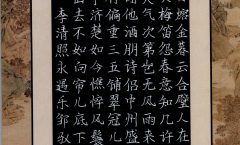 熔金暮云合璧人在
梅笛怨春意知几许
天气次第岂无风雨来
他酒朋诗侣中州盛
偏重三五铺翠冠儿
争济楚如今憔悴风鬟
出去不如向帘儿底下
李清照永遇乐邹驭